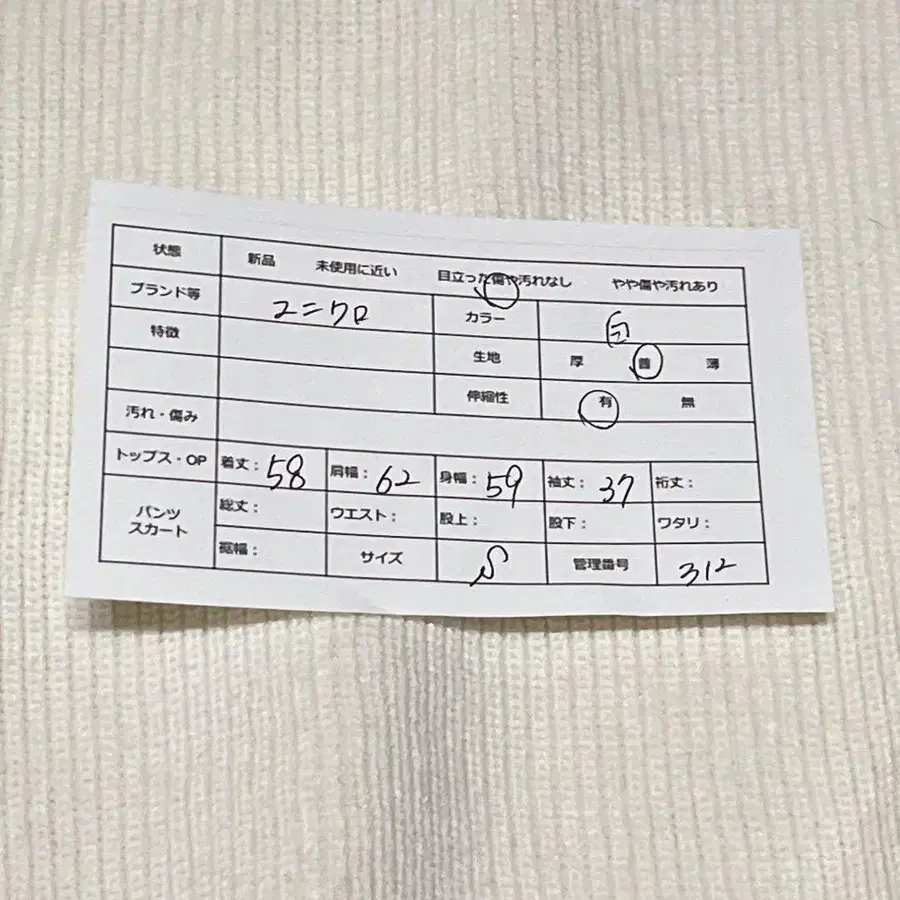 状態 新品 未使用に近い 目立った傷や汚れなし やや傷や汚れあり
ブランド等 ユニクロ カラー 白
特徴 生地 厚 普 薄
伸縮性 有 無
汚れ・傷み
トップス・OP 着丈: 58 肩幅: 62 身幅: 59 袖丈: 37 裄丈:
パンツ スカート 総丈: ウエスト: 股上: 股下: ワタリ:
裾幅: サイズ S 管理番号 312